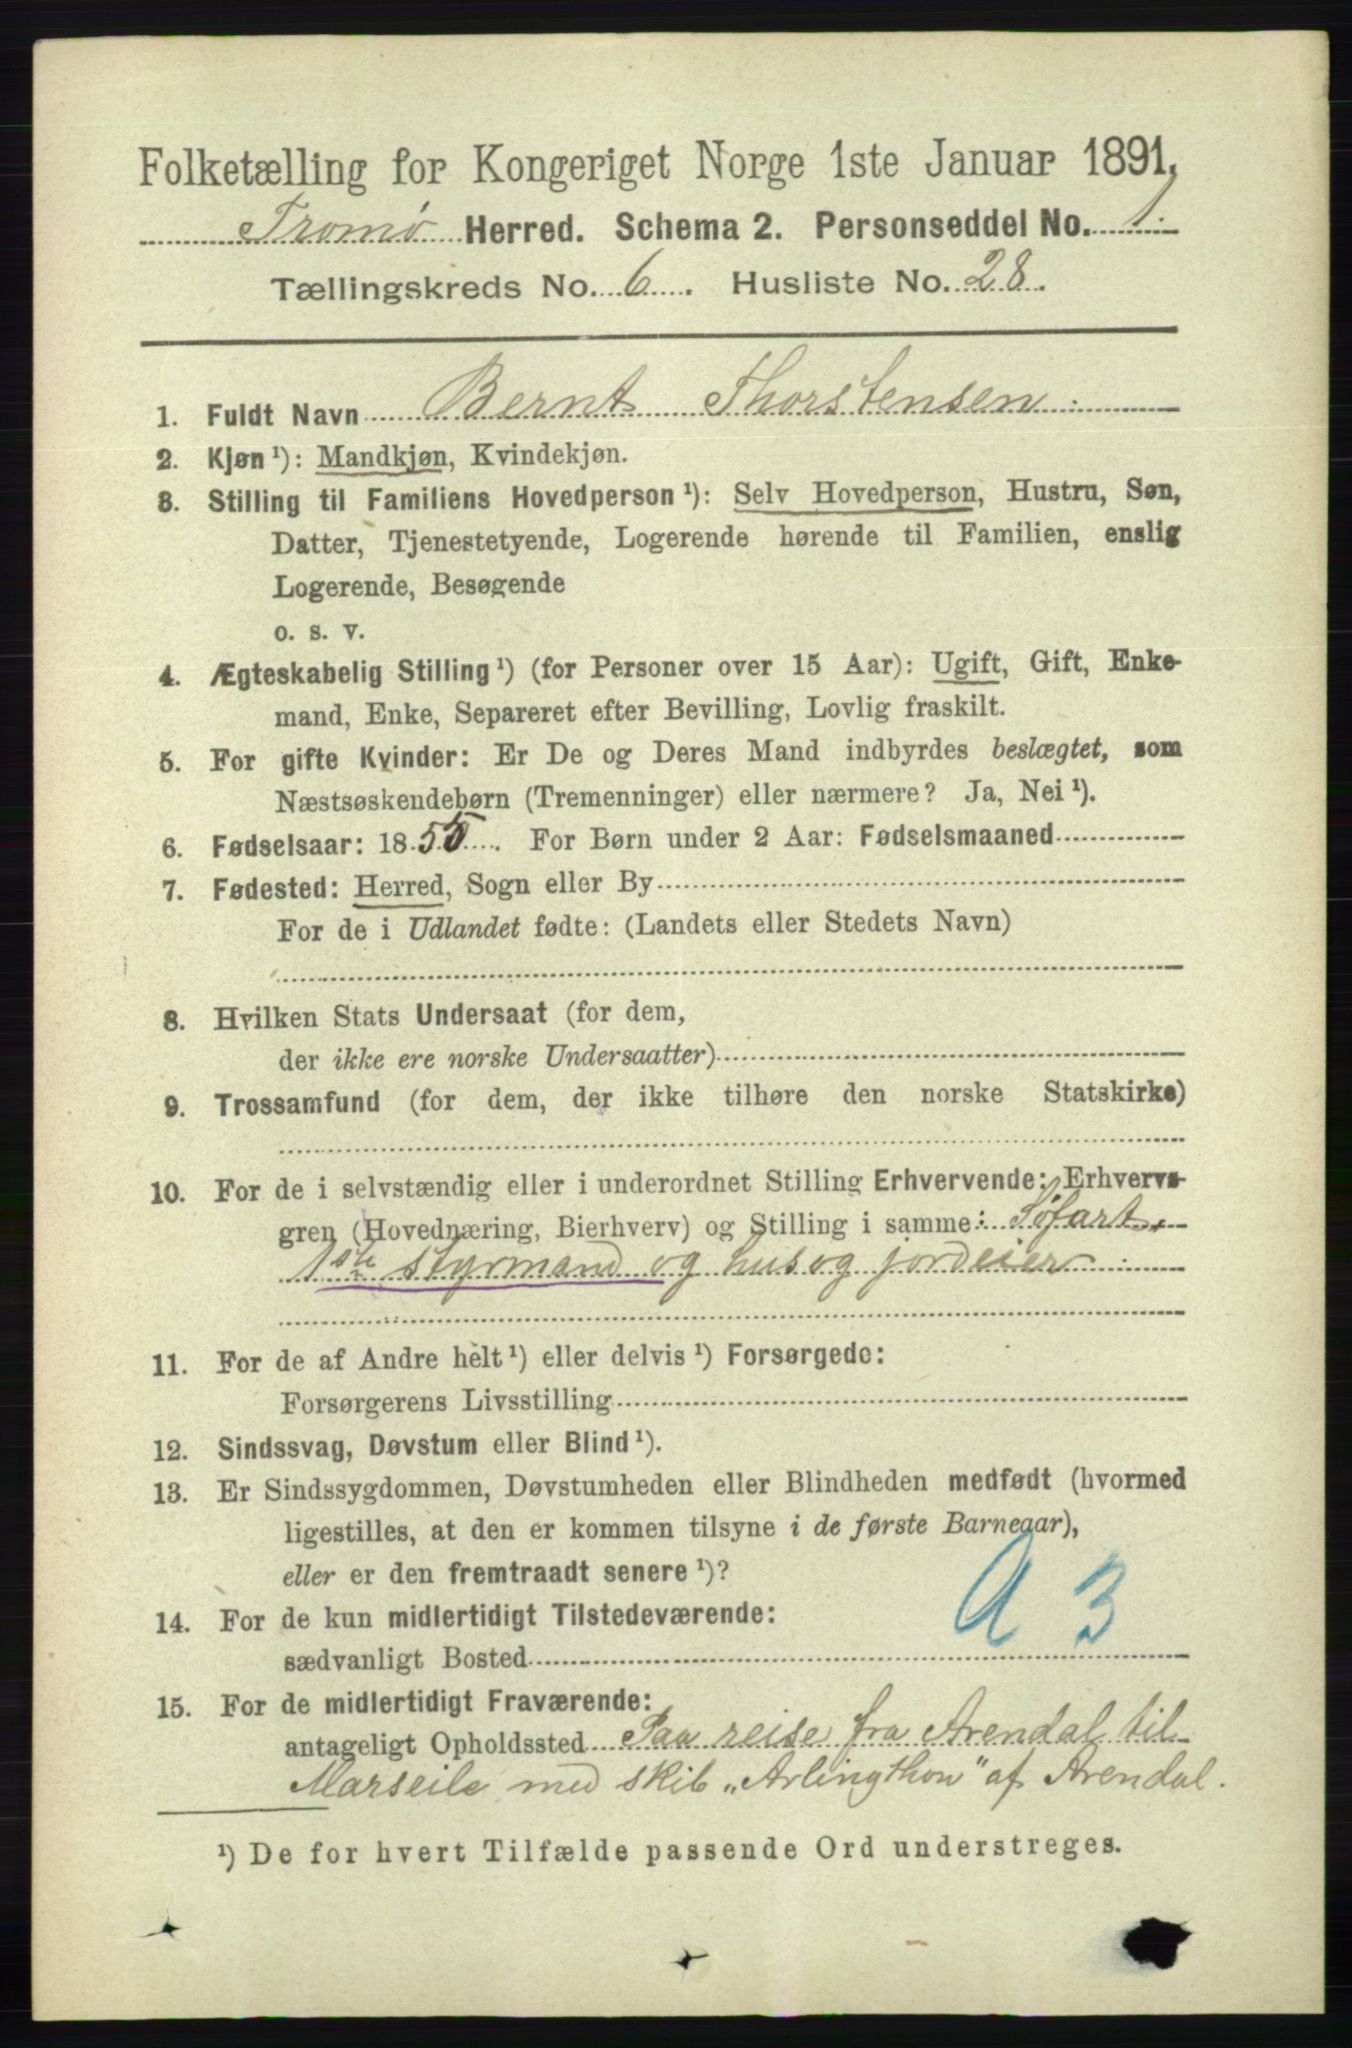 Folketælling for Kongeriget Norge 1ste Januar 1891.
Tromø Herred. Schema 2. Personseddel No. 1.
Tællingskreds No. 6. Husliste No. 28.
1. Fuldt Navn Bernt Thorstensen
2. Kjøn ¹): Mandkjøn, Kvindekjøn.
3. Stilling til Familiens Hovedperson ¹): Selv Hovedperson, Hustru, Søn,
Datter, Tjenestetyende, Logerende hørende til Familien, enslig
Logerende, Besøgende
o. s. v.
4. Ægteskabelig Stilling ¹) (for Personer over 15 Aar): Ugift, Gift, Enke-
mand, Enke, Separeret efter Bevilling, Lovlig fraskilt.
5. For gifte Kvinder: Er De og Deres Mand indbyrdes beslægtet, som
Næstsøskendebørn (Tremenninger) eller nærmere? Ja, Nei ¹).
6. Fødselsaar: 1855. For Børn under 2 Aar: Fødselsmaaned
7. Fødested: Herred, Sogn eller By
For de i Udlandet fødte: (Landets eller Stedets Navn)
8. Hvilken Stats Undersaat (for dem,
der ikke ere norske Undersaatter)
9. Trossamfund (for dem, der ikke tilhøre den norske Statskirke)
10. For de i selvstændig eller i underordnet Stilling Erhvervende: Erhvervs-
gren (Hovednæring, Bierhverv) og Stilling i samme: Søfart,
1ste styrmand og hus og jordeier
11. For de af Andre helt ¹) eller delvis ¹) Forsørgede:
Forsørgerens Livsstilling
12. Sindssvag, Døvstum eller Blind ¹).
13. Er Sindssygdommen, Døvstumheden eller Blindheden medfødt (hvormed
ligestilles, at den er kommen tilsyne i de første Barneaar),
eller er den fremtraadt senere ¹)?
a 3
14. For de kun midlertidigt Tilstedeværende:
sædvanligt Bosted
15. For de midlertidigt Fraværende:
antageligt Opholdssted Paa reise fra Arendal til
Marseile med skib „Arlingthon" af Arendal.
¹) De for hvert Tilfælde passende Ord understreges.